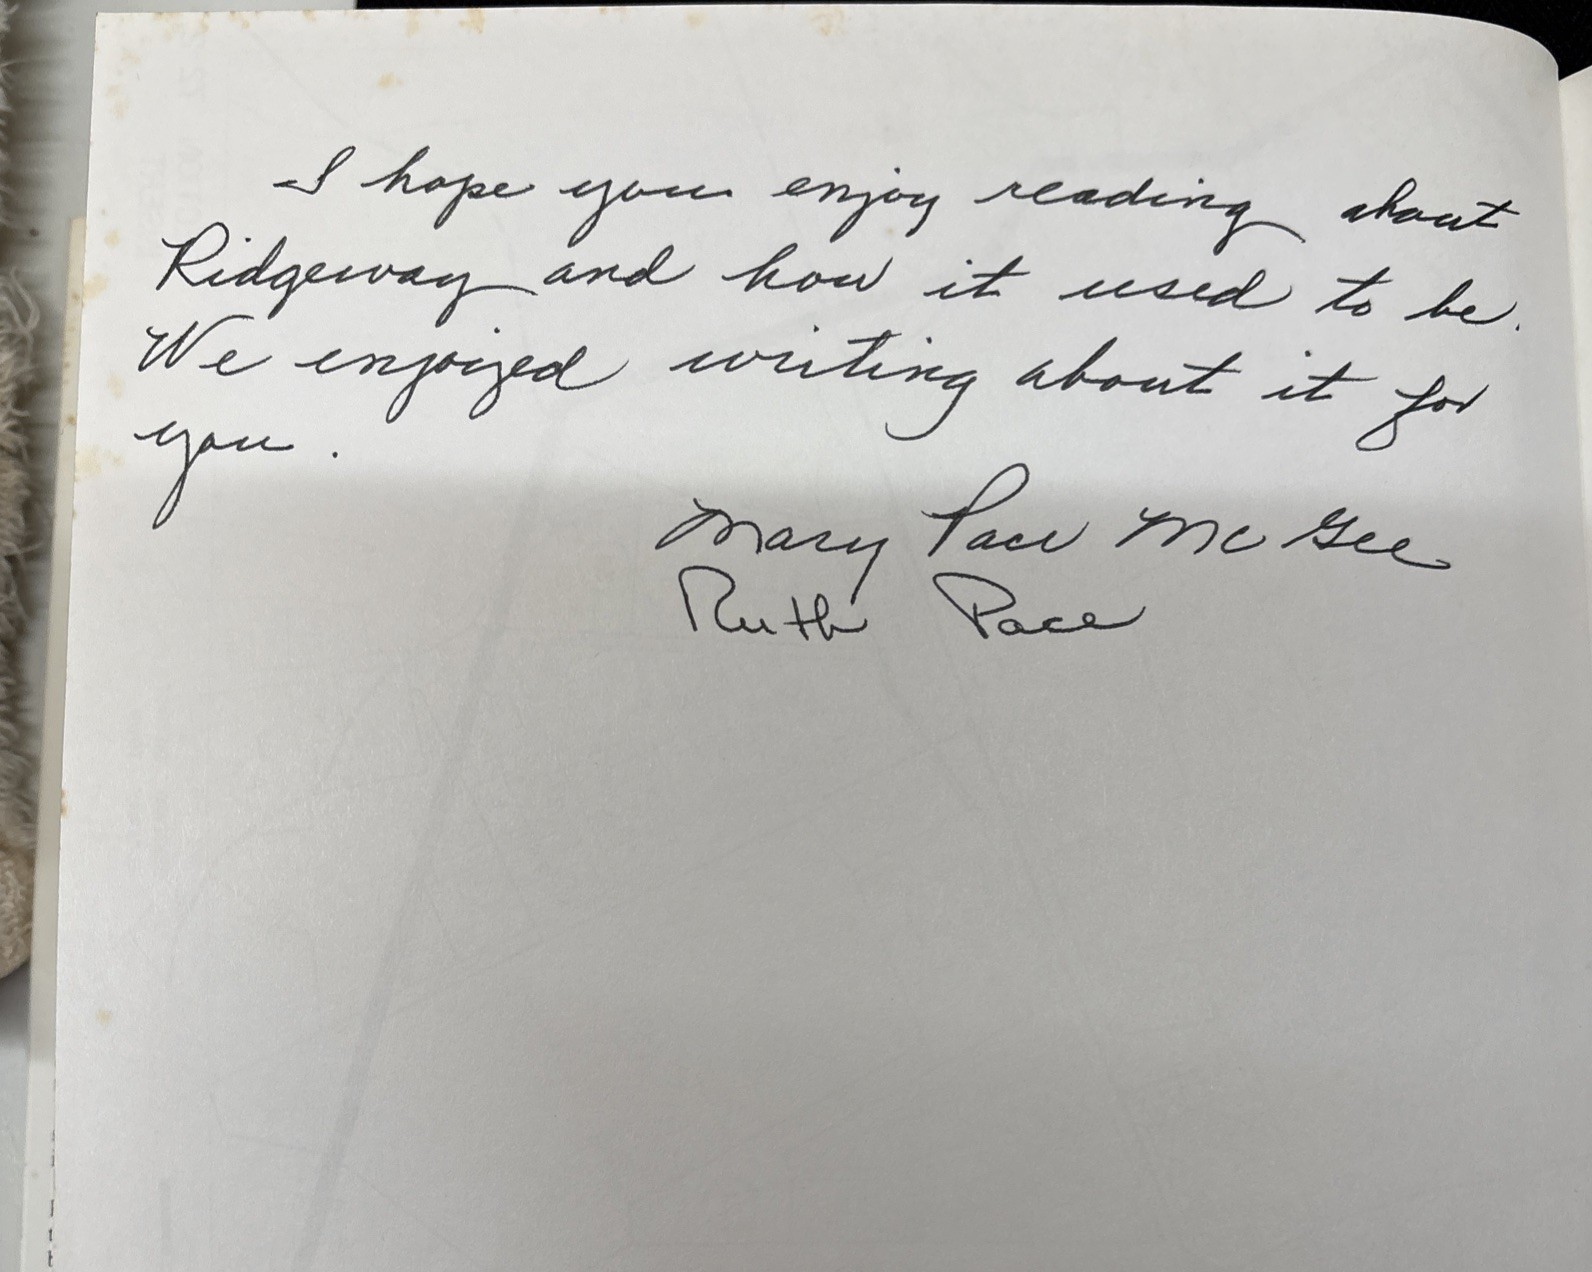 I hope you enjoy reading about
Ridgeway and how it used to be.
We enjoyed writing about it for
you.
Mary Pace McGee
Ruth Pace